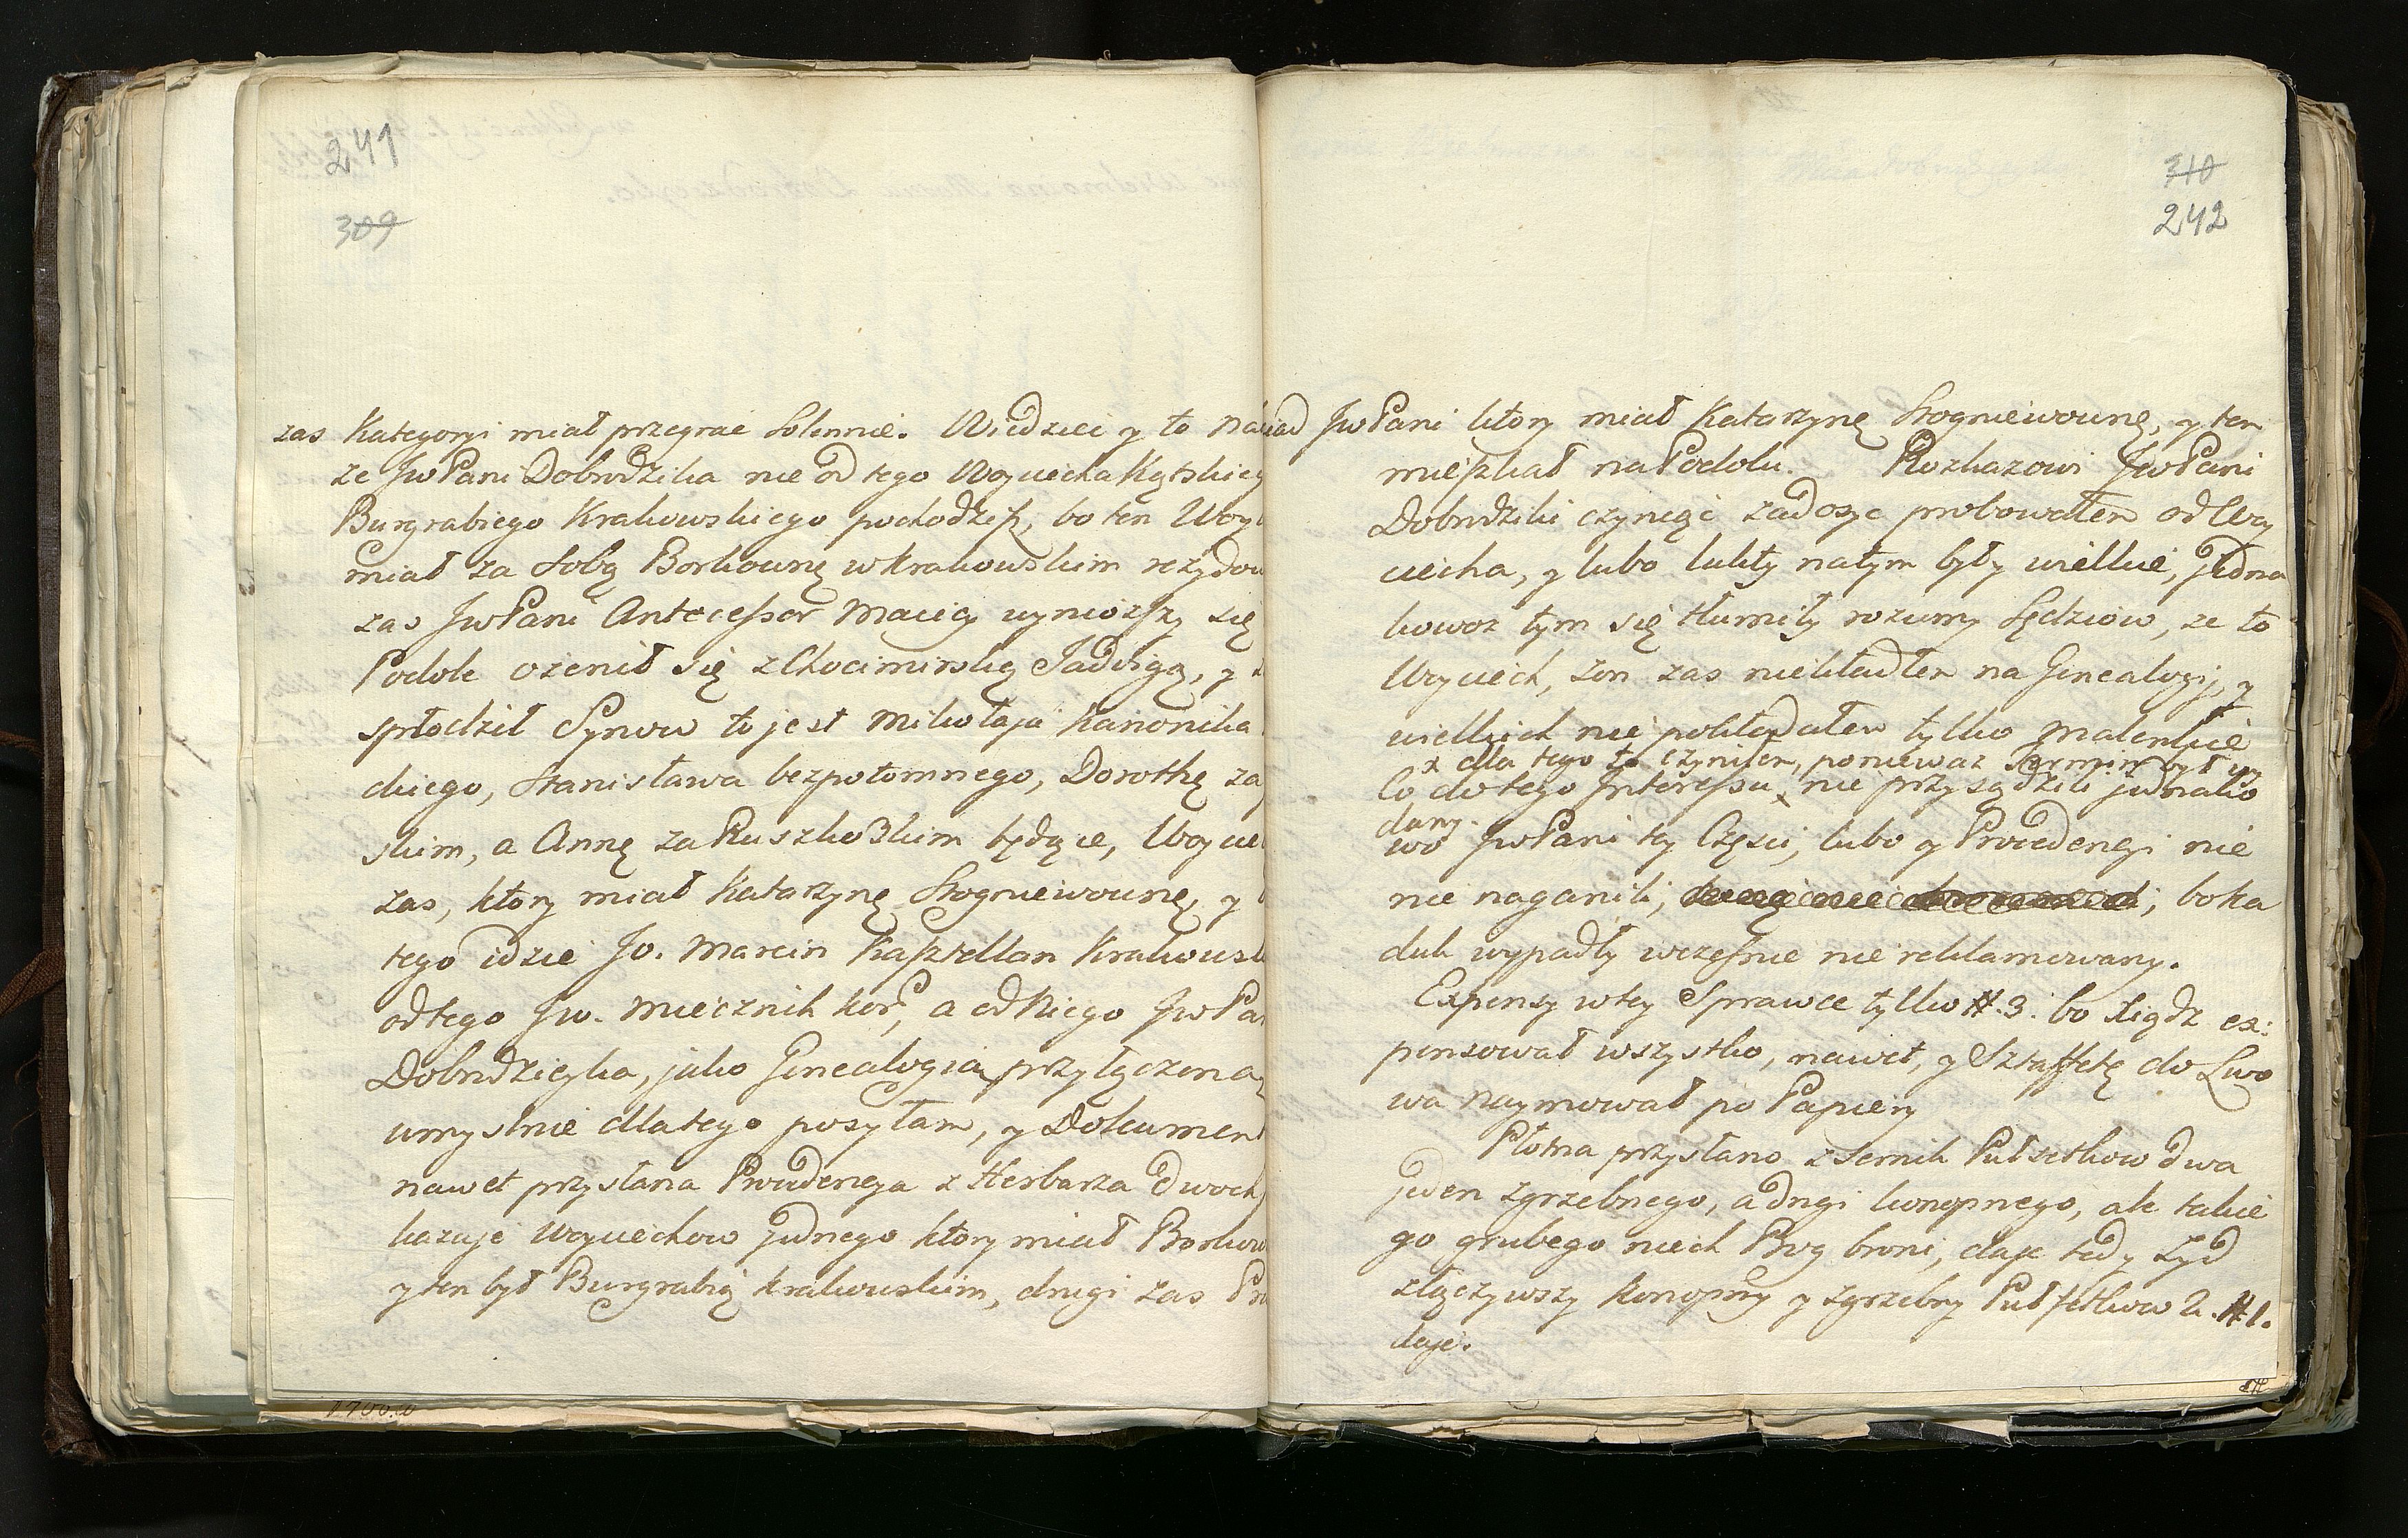 241
309
zas Kategoryi miał przegrac Solennie. Wiedziec y to na
ze JwPani Dobrodzika nie od tego Woyciecha Kątskieg
Burgrabiego Krakowskiego pochodzisz, bo ten Woy
miał za Sobą Borkownę w Krakowskim rezydow
zas JwPani Antecessor Maciey wyniozszy się
Podole ozenił się z Chocimirską Jadwigą, y z
spłodził Synow to jest Mikołaja Kanonika
ckiego, Stanisława bezpotomnego, Dorothę za
skim, a Annę za Ruszkoskim będące, Woycie
zas, ktory miał Katarzynę Srogniewownę, y
tego idzie Jo. Marcin Kasztellan Krakowsk
od tego Jw. Miecznik kor, a od Niego JwPa
Dobrodzieyka, jako Genealogia przyłączona
umyslnie dla tego posyłam, y Dokumen
nawet przysłana Prowdencya z Herbarza dwoch
kazuje Woyciechow jednego ktory miał Borkow
y ten był Burgrabią krakowskim, drugi zas Pr
1700.
310
242
dziad JwPani ktory miał Katarzynę Srogniewownę, y ten
mieszkał na Podolu. Rozkazowi JwPani
Dobrodziki czyniąc zadosyc probowałem od Woy
ciecha, y lubo lukty na tym były wielkie, jedna
kowoz tym się tłumiły rozumy Sędziow, ze to
Woyciech, zon zas niekładłem na Genealogij, y
wielkich nie pokładałem tylko malenkie
x dla tego to czyniłem, poniewaz Termin był za
Co do tego Interessu x nie przysądzili jednako
dany.
wo JwPani tey Częsci, lubo y Prowdencyi nie
nie naganili, bo ka
duk wypadły wczesnie nie reklamowany.
Expensy w tey Sprawce tylko #. 3. bo Xiądz ex:
pensował wszystko, nawet, y Sztaffetę do Lwo
wa naymował po Papiery
Płotna przysłano z Sernik Puł setkow dwa
jeden zgrzebnego, a drugi konopnego, ale takie
go grubego niech Bog broni, daje tedy Zyd
złączywszy konopny y zgrzebny Puł setkow 2. #1.
daje.